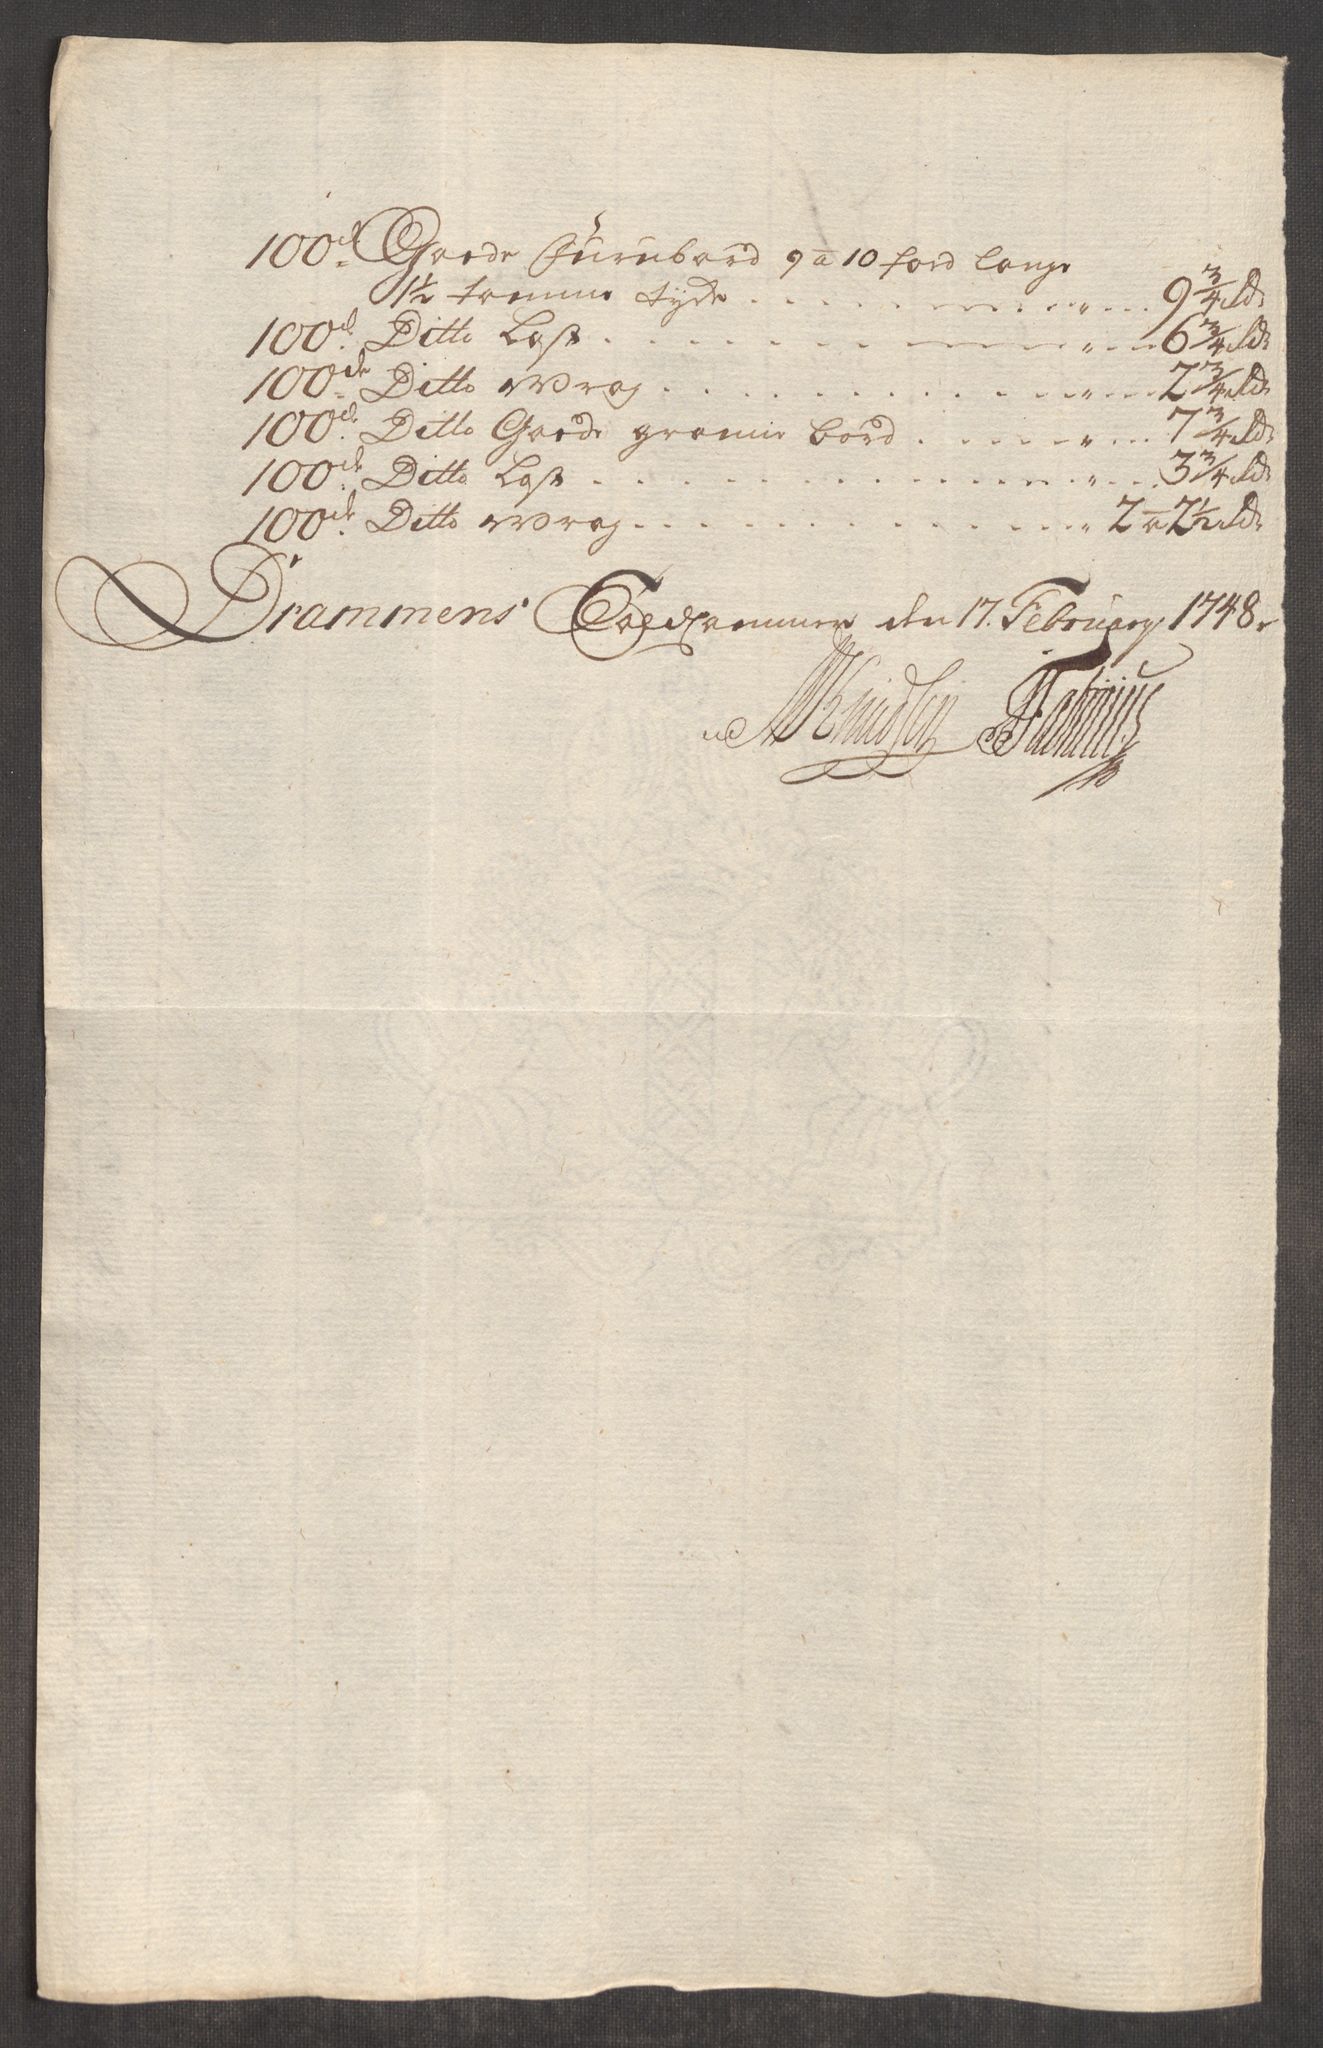 100de Goede Furubord 9 a 10 foed lange
1½ tomme tyde 9¾ rdr
100de Ditto Last 6¾ rdr
100de Ditto Wrag 2¾ rdr
100de Ditto Goede granne bord 7¾ rdr
100de Ditto Last 3¾ rdr
100de Ditto Wrag 2 a 2½ rdr
Drammens Toldkammer den 17. February 1748
Knudsen Fabritius